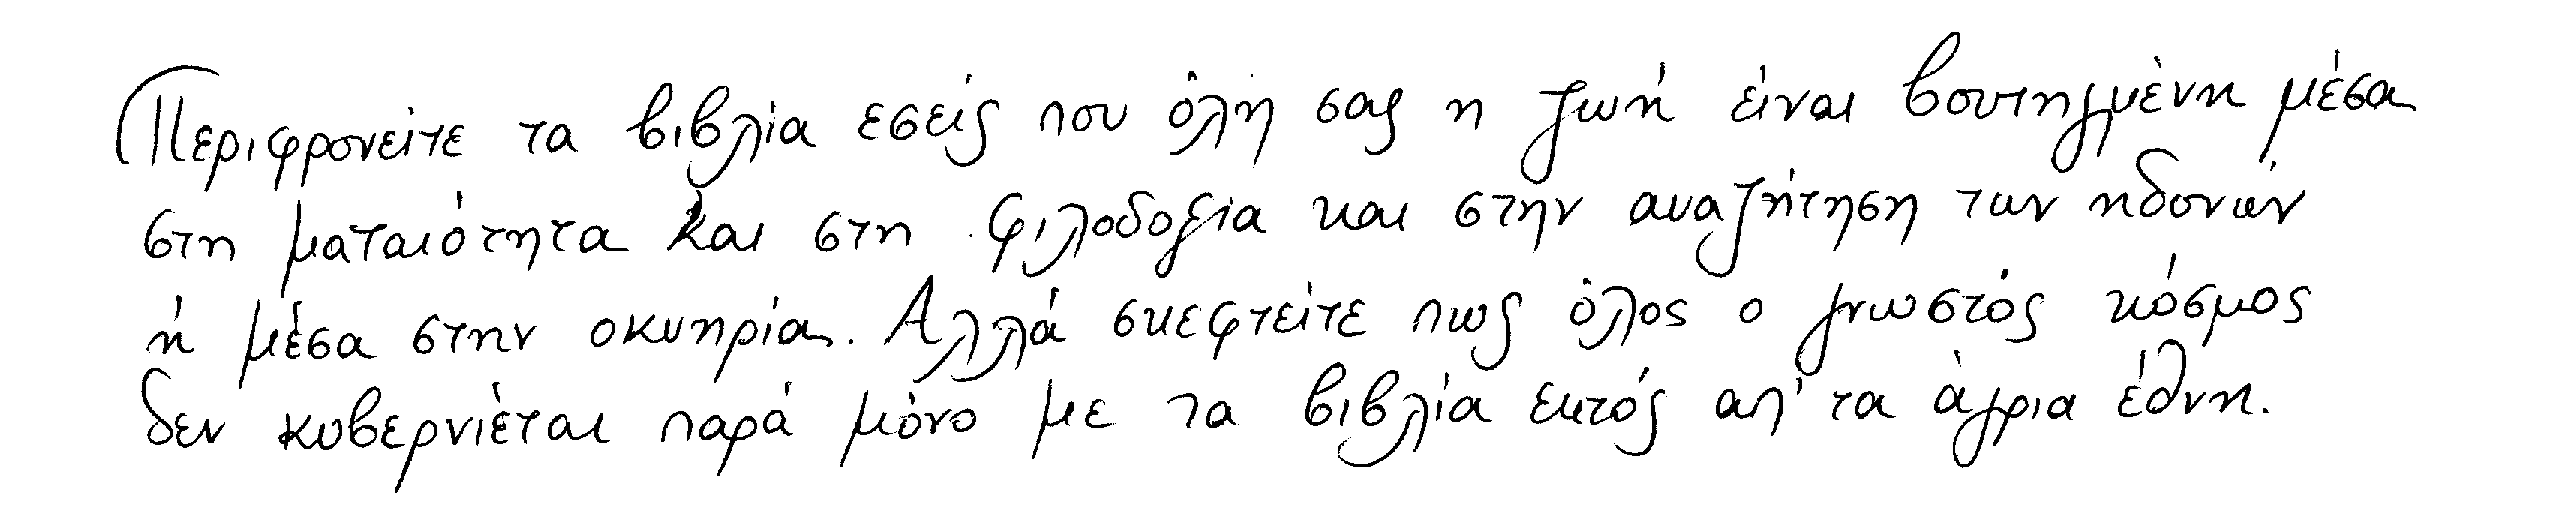 Περιφρονείτε τα βιβλία εσείς που όλη σας η ζωή είναι βουτηγμένη μέσα
στη ματαιότητα και στη φιλοδοξία και στην αναζήτηση των ηδονών
ή μέσα στην οκνηρία. Αλλά σκεφτείτε πως όλος ο γνωστός κόσμος
δεν κυβερνιέται παρά μόνο με τα βιβλία εκτός απ' τα άγρια έθνη.